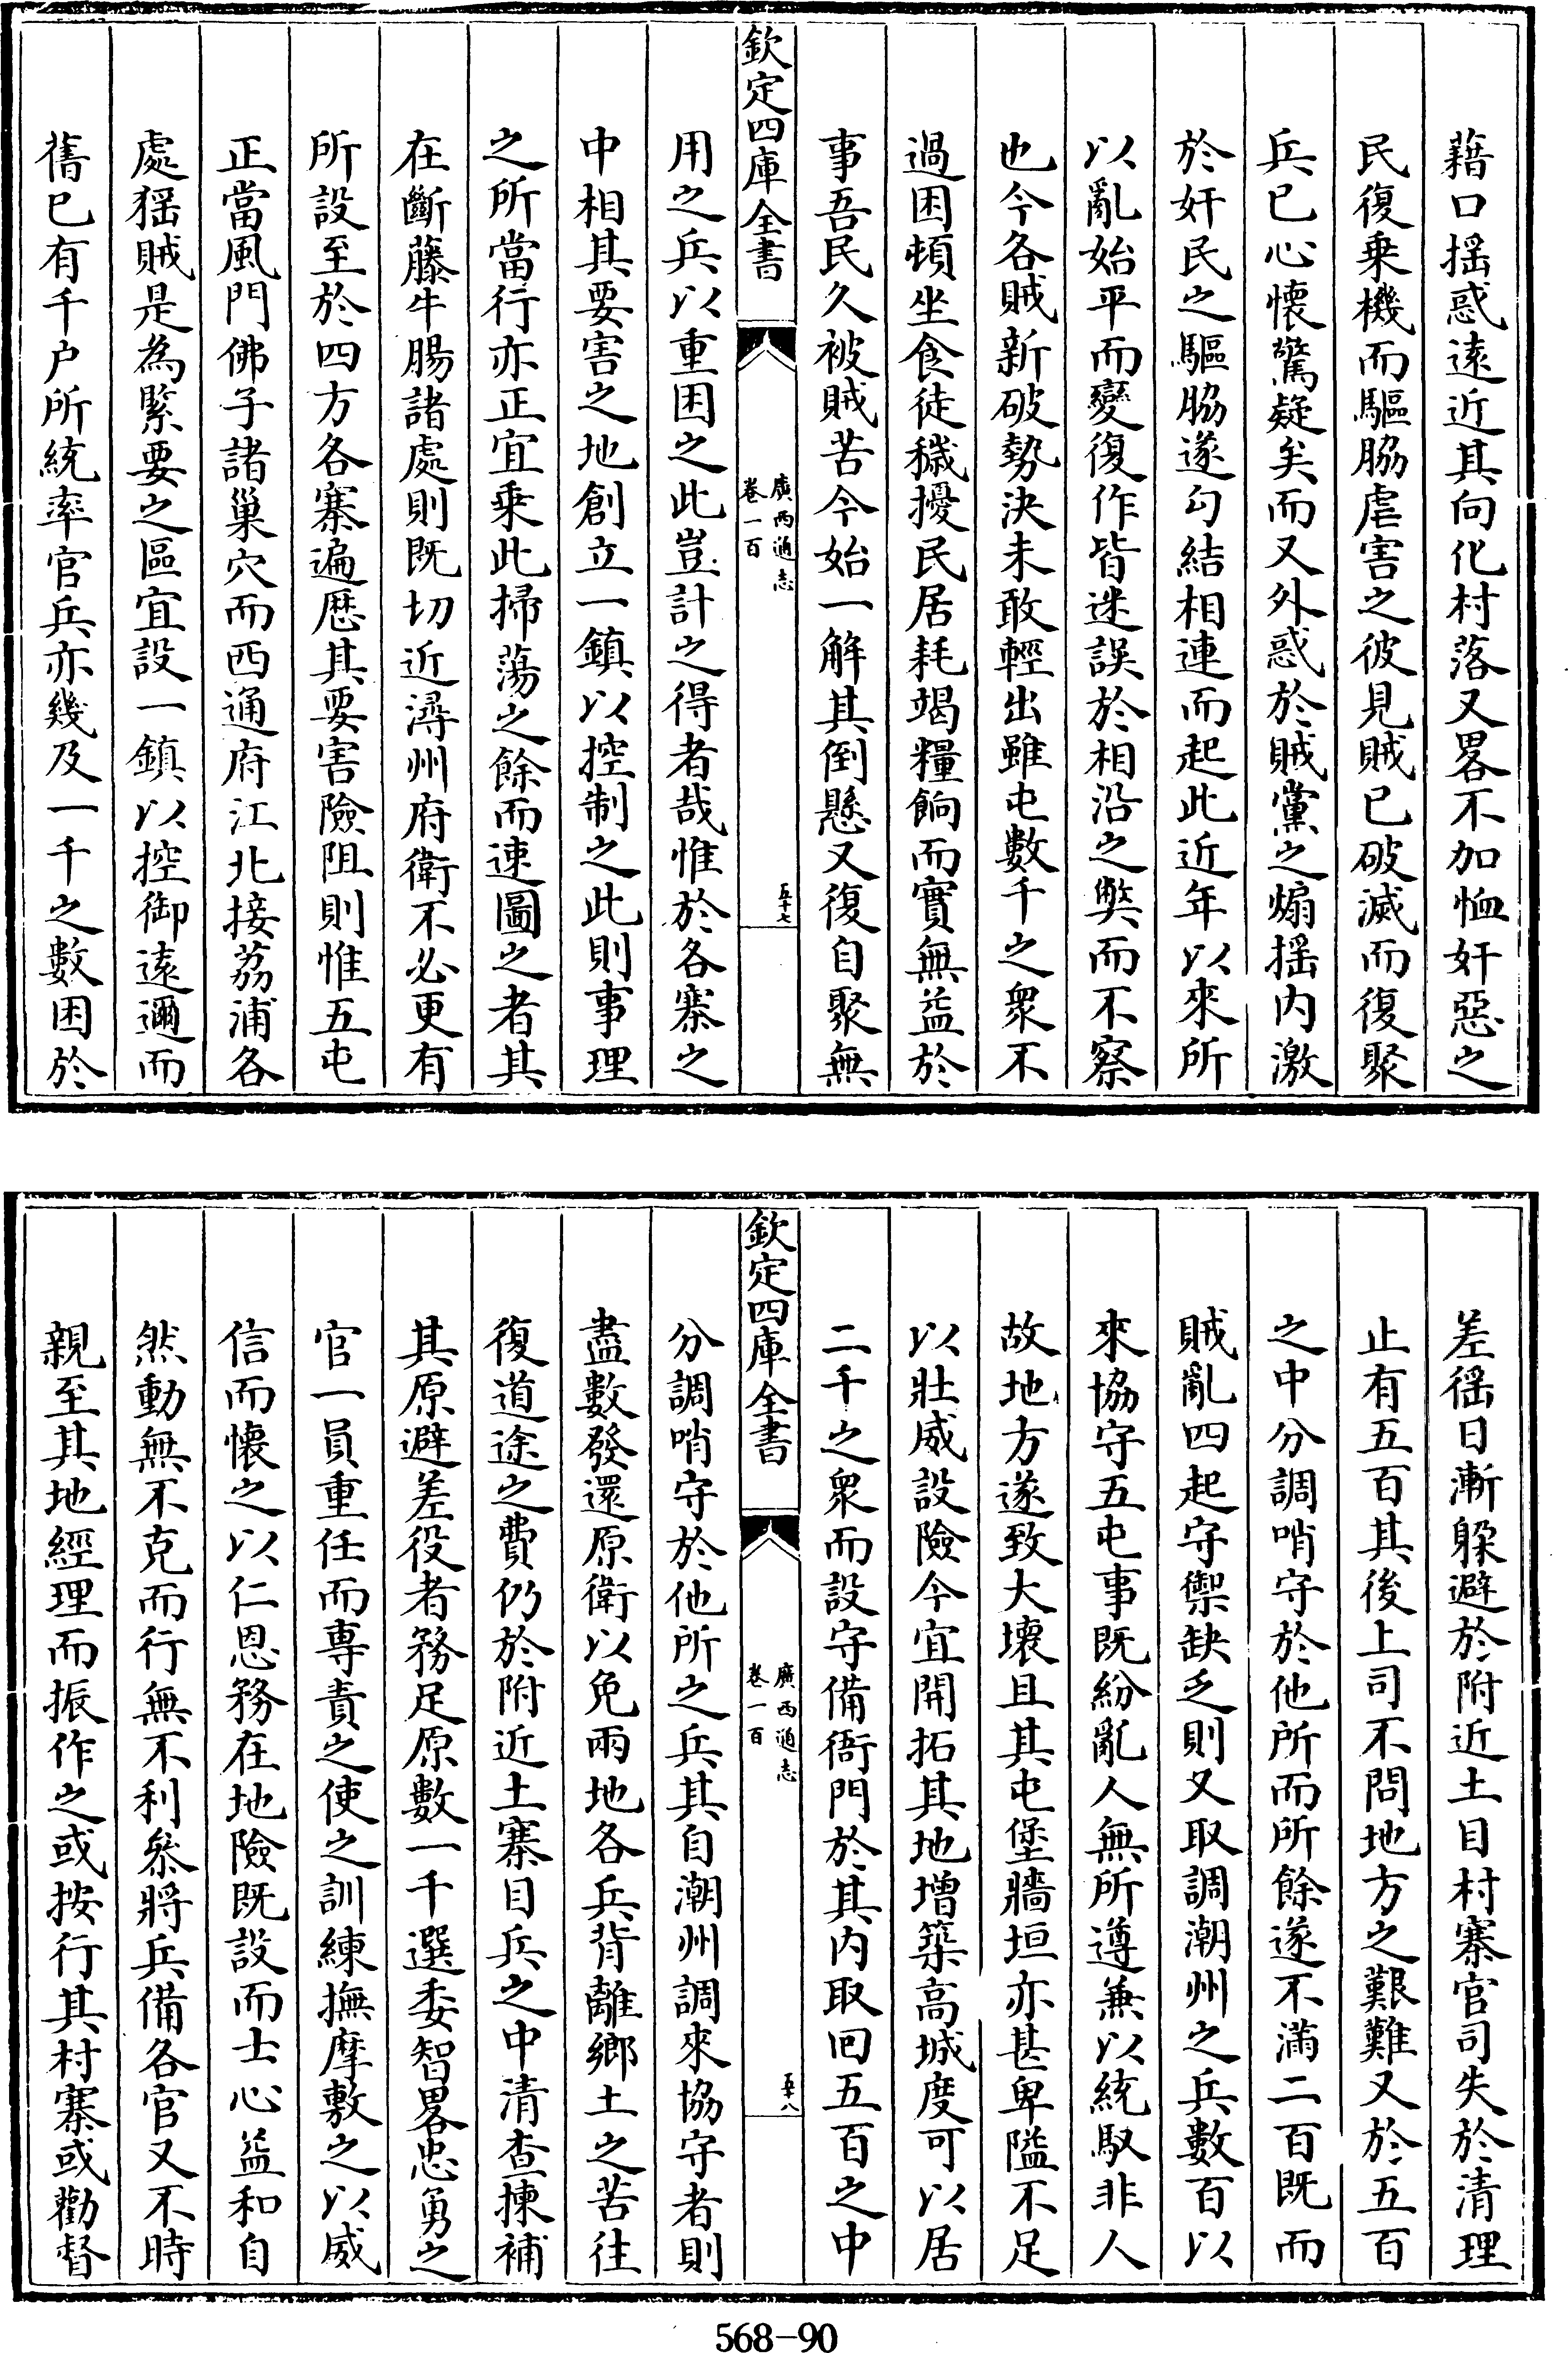 藉口揺惑逺近其向化村落又畧不加恤奸惡之
民復乗機而驅脇虐害之彼見賊已破滅而復聚
兵已心懷驚疑矣而又外惑於賊黨之煽揺内激
於奸民之驅脇遂勾結相連而起此近年以來所
以亂始平而變復作皆迷誤於相沿之弊而不察
也今各賊新破勢決未敢輕出雖屯數千之衆不
過困頓坐食徒穢擾民居耗竭糧餉而實無益於
事吾民久被賊苦今始一解其倒懸又復自聚無
欽定四庫全書
廣西通志
卷一百
五十七
用之兵以重困之此豈計之得者哉惟於各寨之
中相其要害之地創立一鎮以控制之此則事理
之所當行亦正宜乗此掃蕩之餘而速圖之者其
在斷藤牛腸諸處則既切近潯州府衛不必更有
所設至於四方各寨遍歴其要害險阻則惟五屯
正當風門佛子諸巢穴而西通府江北接荔浦各
處猺賊是為緊要之區宜設一鎮以控御逺邇而
舊已有千户所統率官兵亦幾及一千之數困於
差徭日漸躱避於附近土目村寨官司失於清理
止有五百其後上司不問地方之艱難又於五百
之中分調哨守於他所而所餘遂不滿二百既而
賊亂四起守禦缺乏則又取調潮州之兵數百以
來協守五屯事既紛亂人無所遵兼以統馭非人
故地方遂致大壞且其屯堡牆垣亦甚卑隘不足
以壯威設險今宜開拓其地增築髙城度可以居
二千之衆而設守備衙門於其内取回五百之中
欽定四庫全書
廣西通志
卷一百
五十八
分調哨守於他所之兵其自潮州調來協守者則
盡數發還原衛以免兩地各兵背離鄉土之苦往
復道途之費仍於附近土寨目兵之中清查揀補
其原避差役者務足原數一千選委智畧忠勇之
官一員重任而專責之使之訓練撫摩敷之以威
信而懷之以仁恩務在地險既設而士心益和自
然動無不克而行無不利叅將兵備各官又不時
親至其地經理而振作之或按行其村寨或勸督
568-90